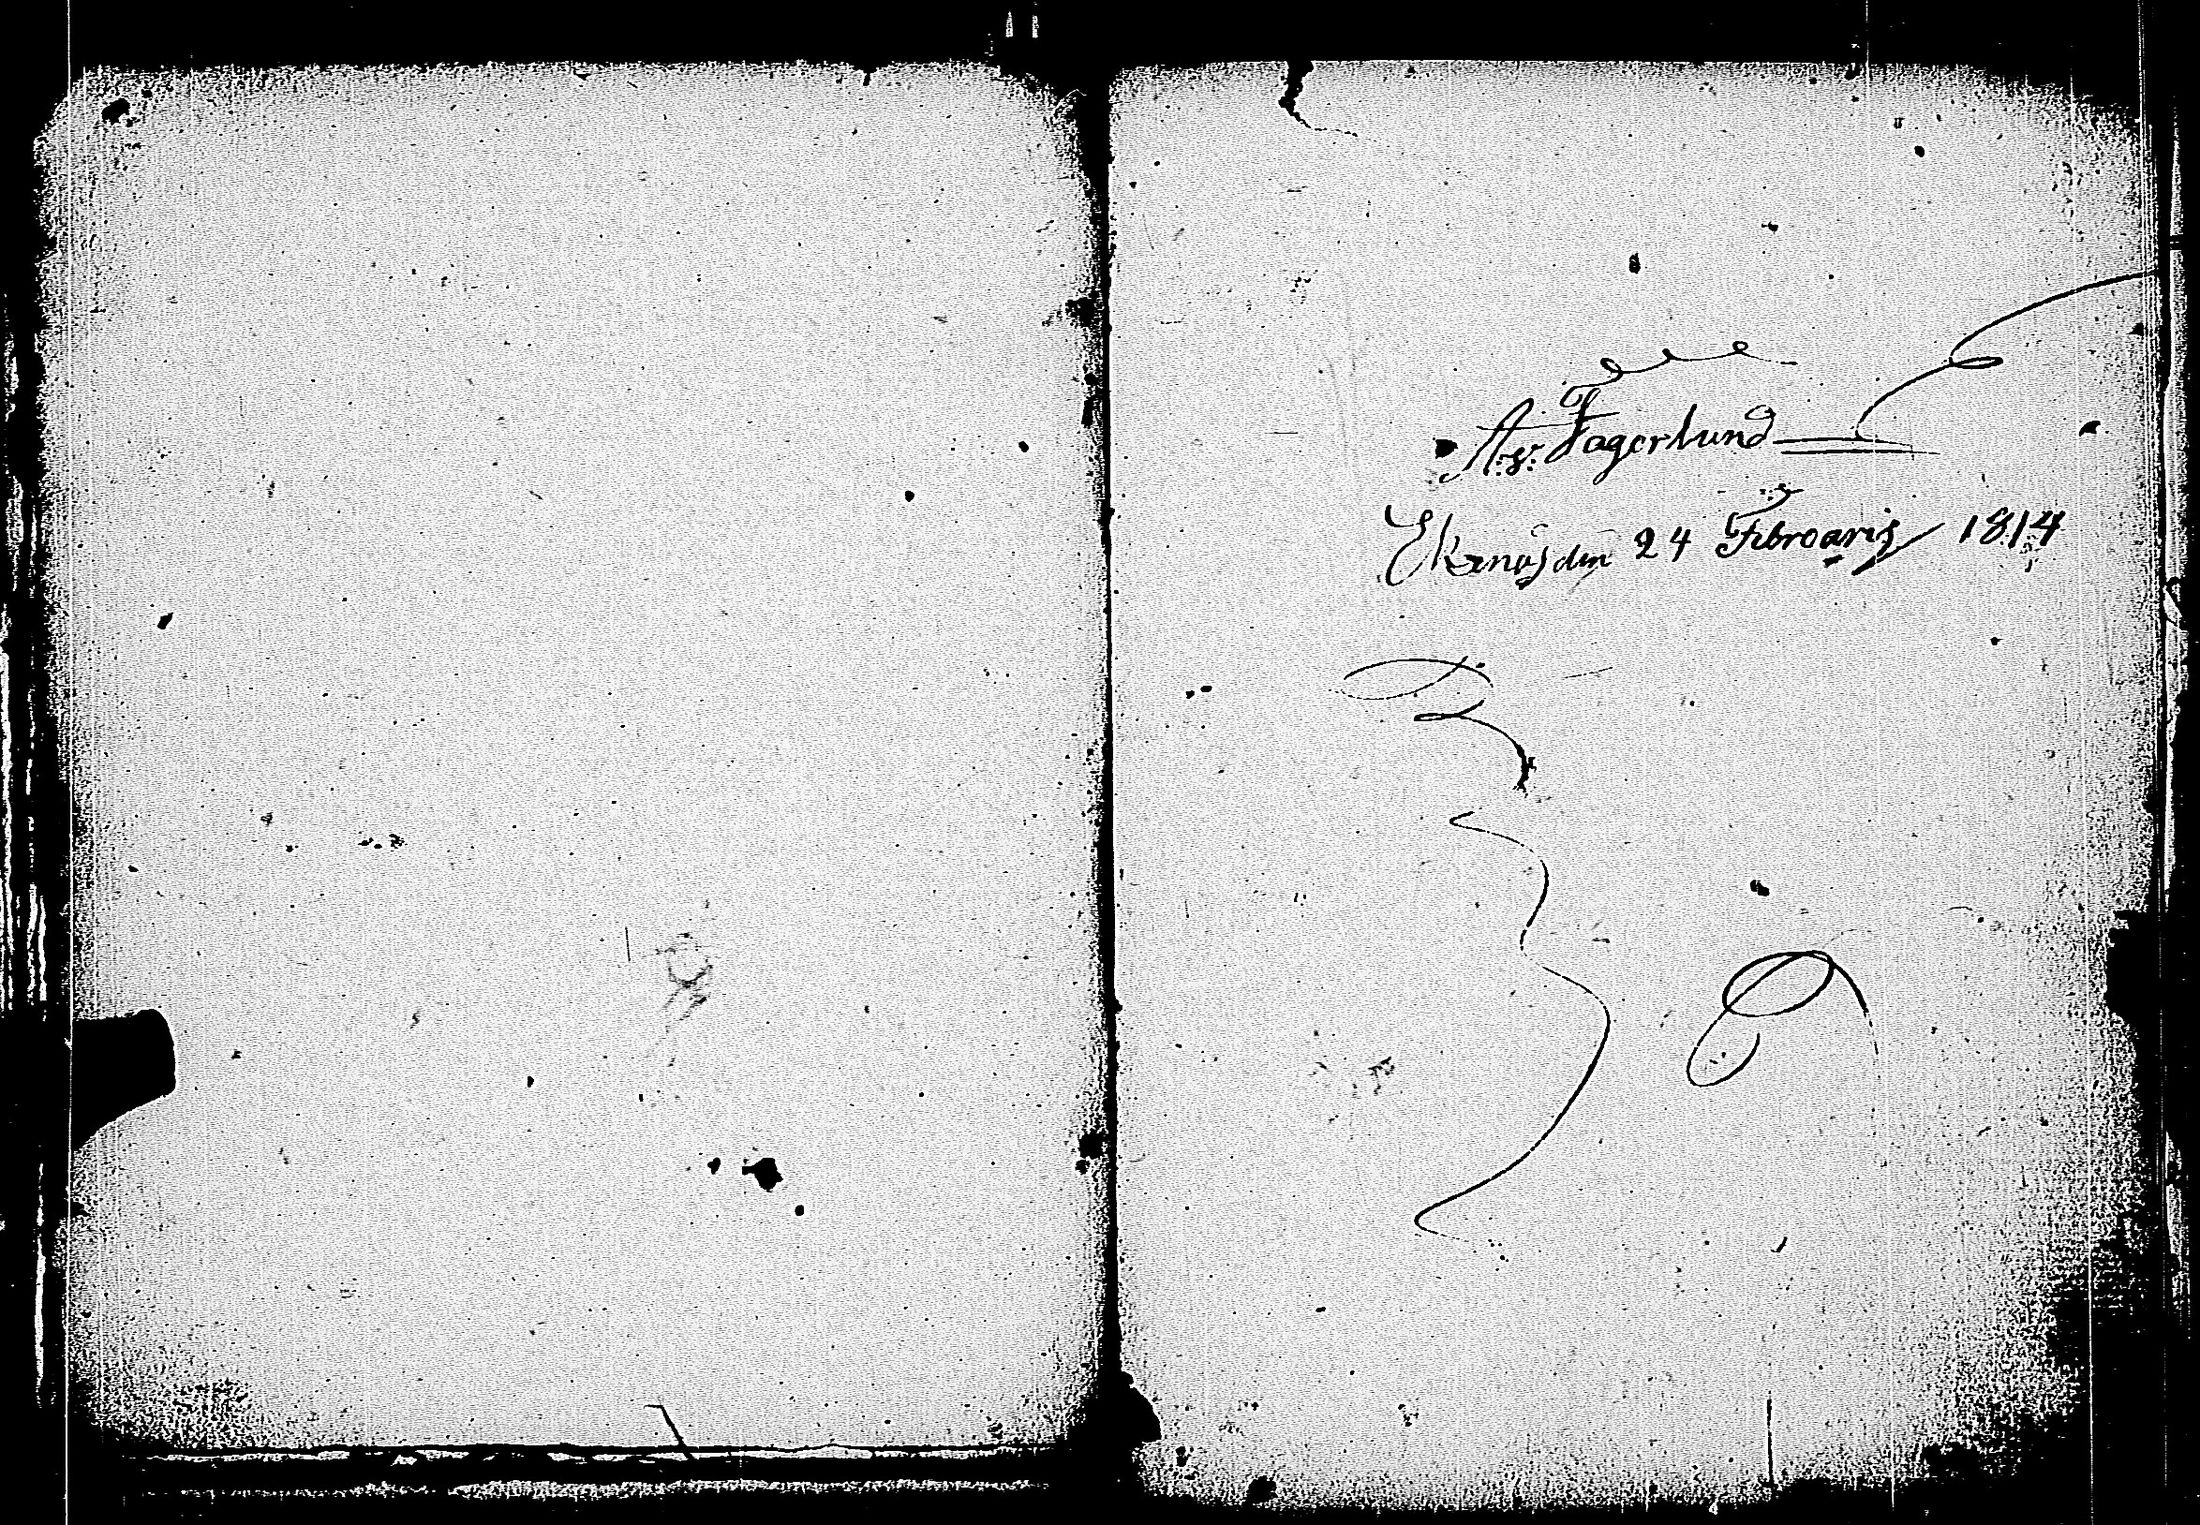 A:s: Fagerlund
Ekenäs den 24 Febroarij 1814